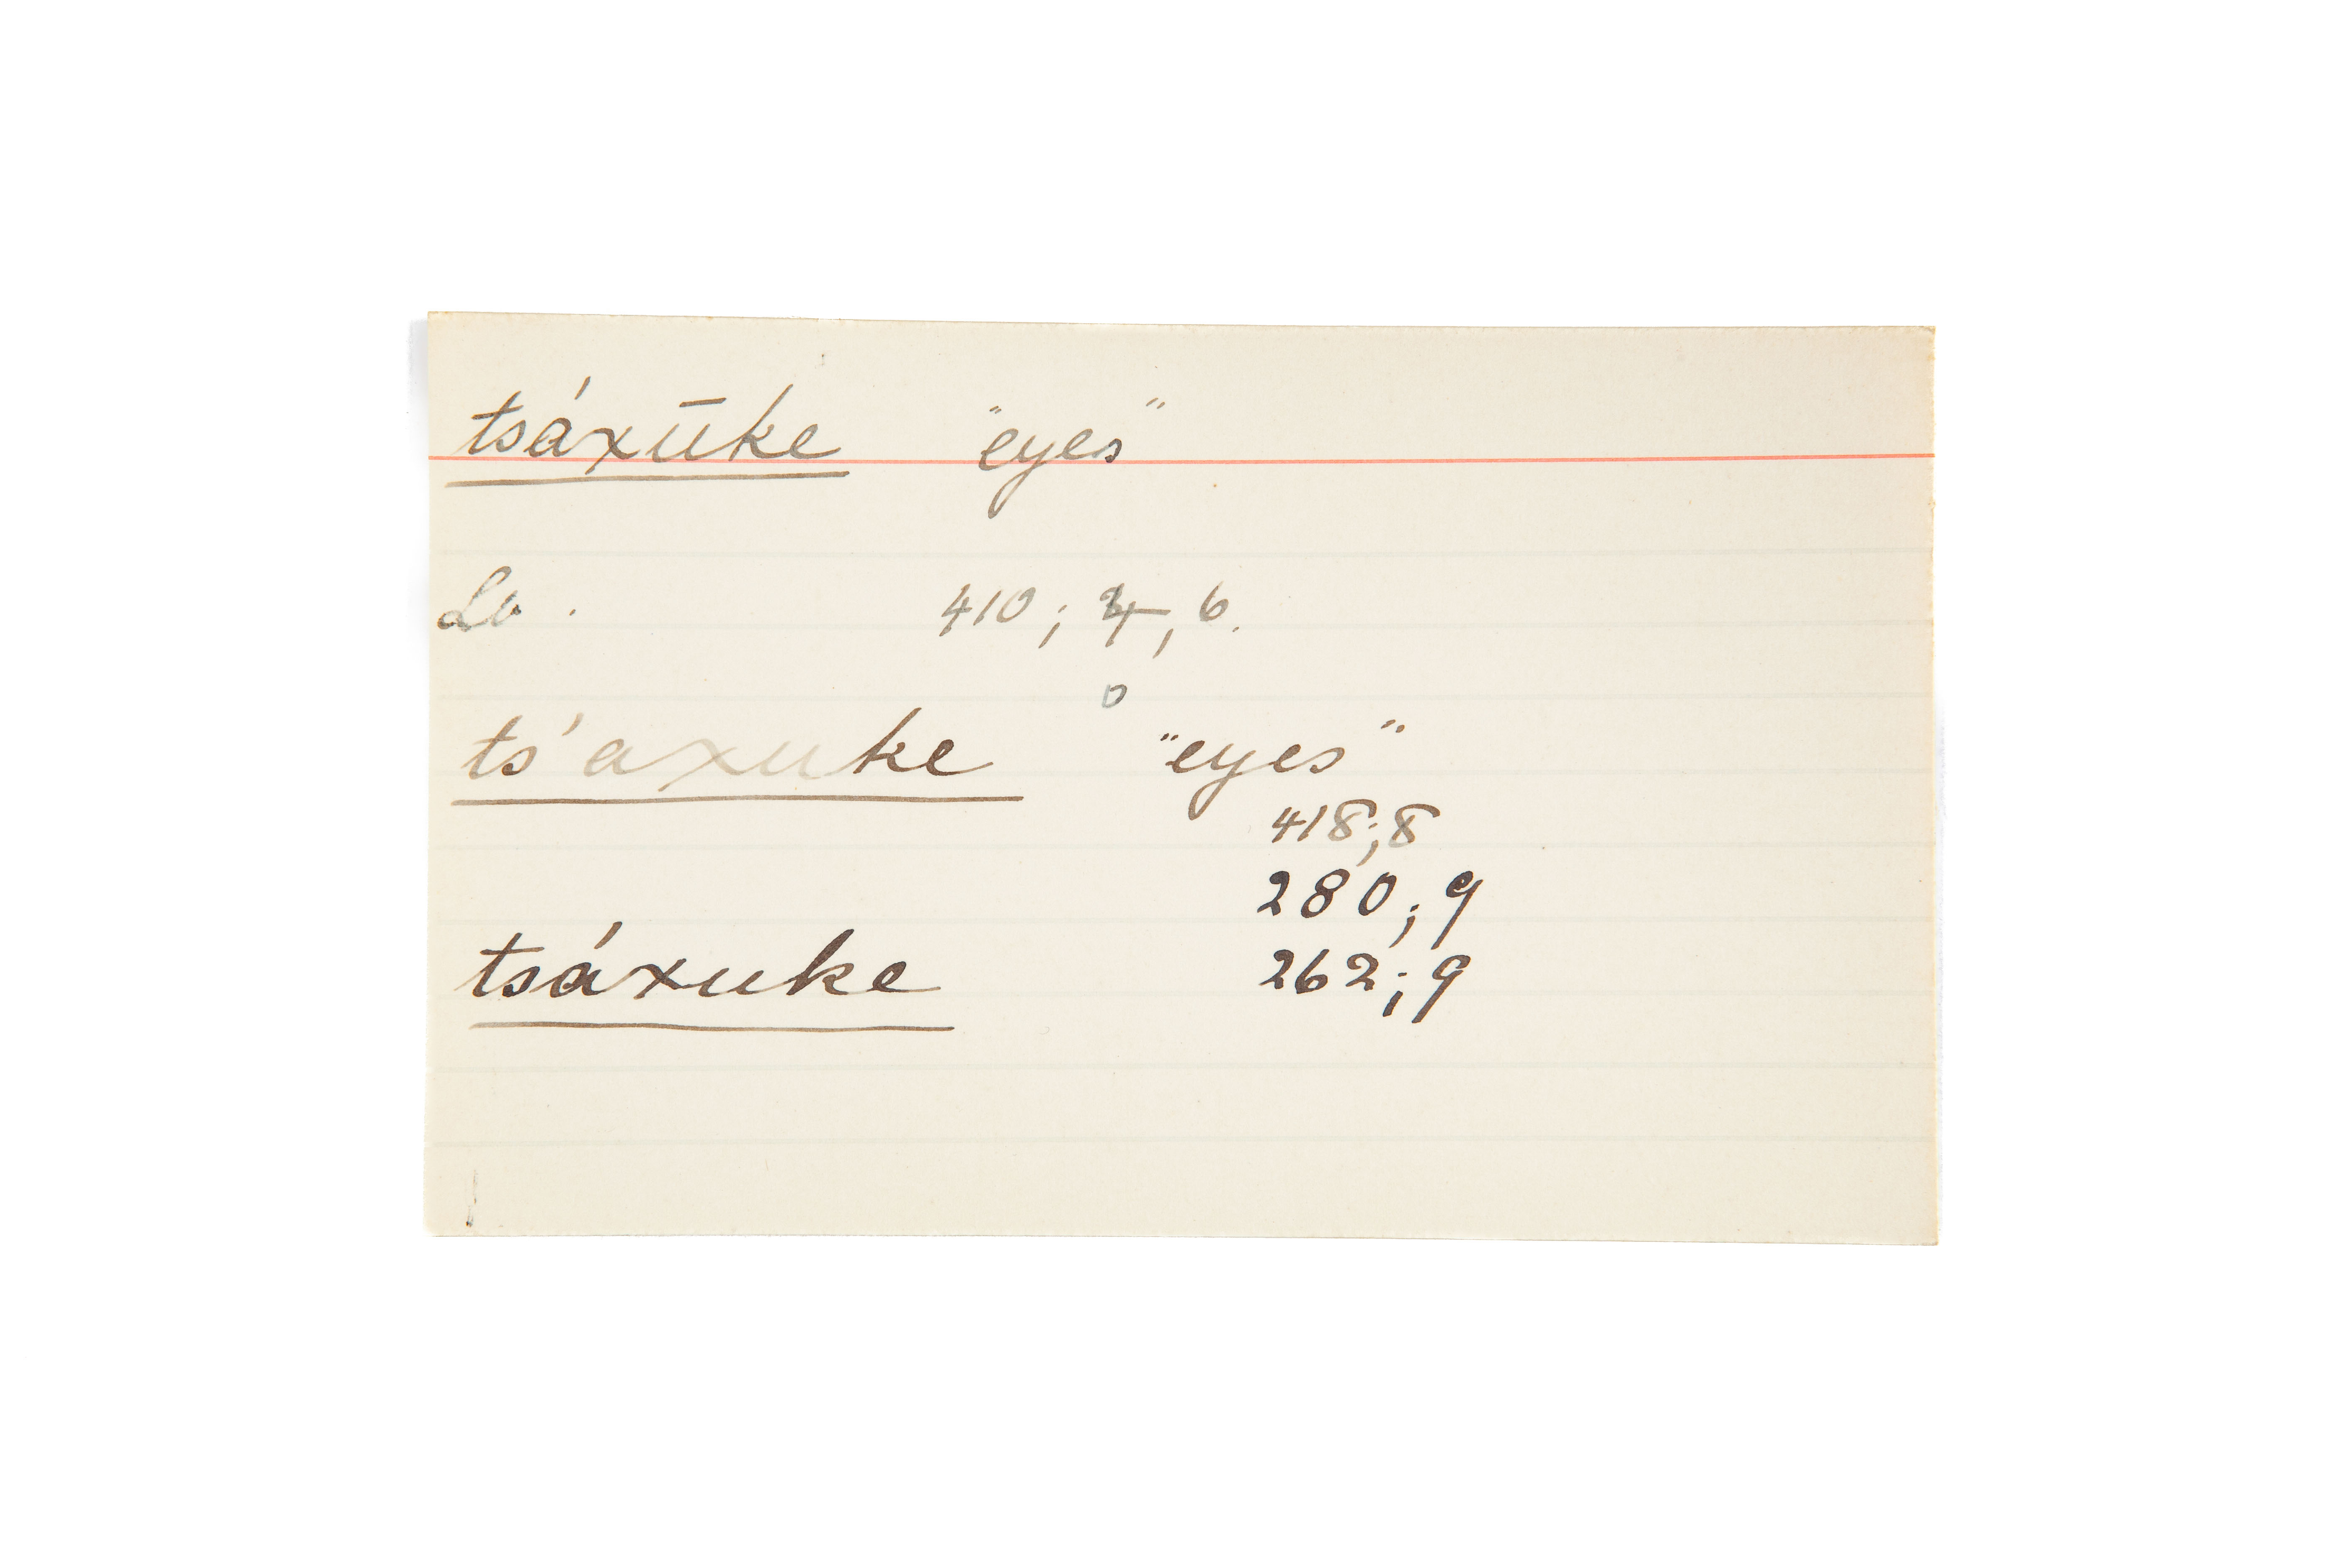 tsáxūke "eyes"
410; 4, 6.
ts'axuke "eyes"
418;8
280;9
tsáxuke 262;9